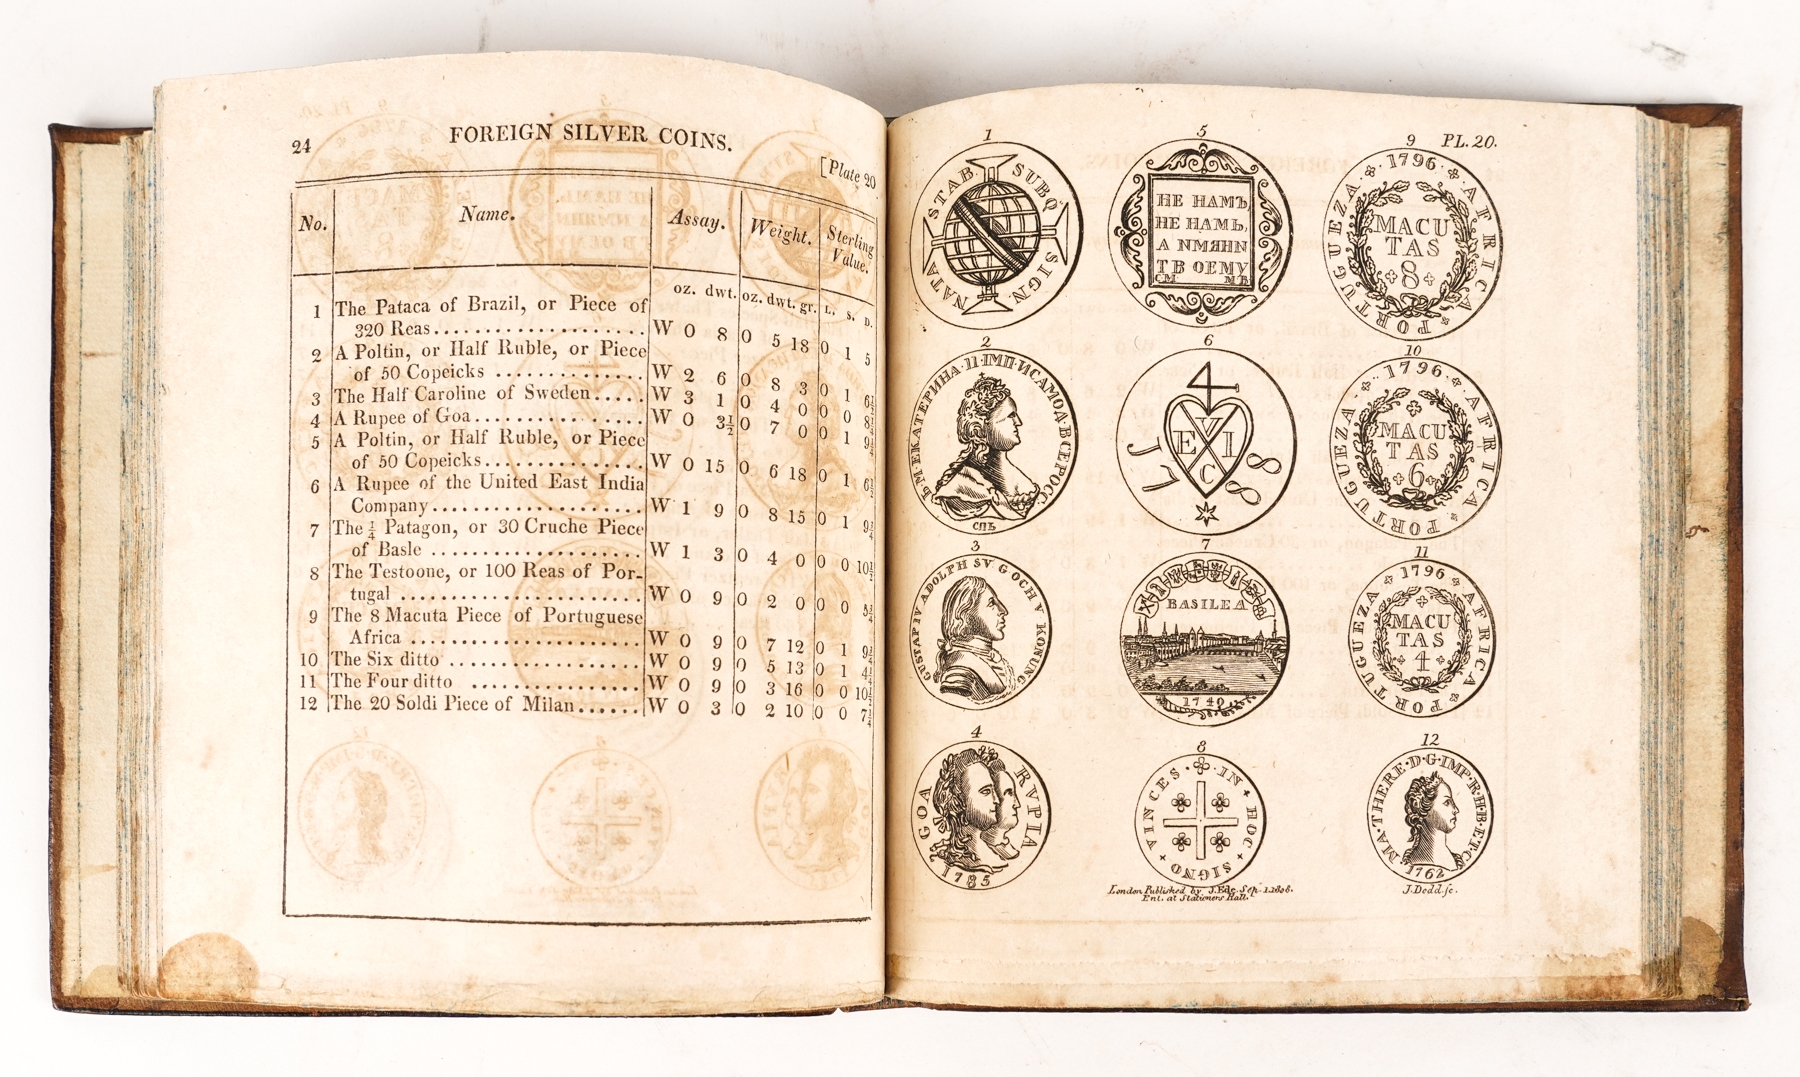 24 FOREIGN SILVER COINS.
[Plate 20
No. Name. Assay. Weight. Sterling Value.
oz. dwt. oz. dwt. gr. L. S. D.
1 The Pataca of Brazil, or Piece of
320 Reas W 0 8 0 5 18 0 1 5
2 A Poltin, or Half Ruble, or Piece
of 50 Copeicks W 2 6 0 8 3 0 1 6½
3 The Half Caroline of Sweden W 3 1 0 4 0 0 0 8¾
4 A Rupee of Goa W 0 3½ 0 7 0 0 1 9¼
5 A Poltin, or Half Ruble, or Piece
of 50 Copeicks W 0 15 0 6 18 0 1 6½
6 A Rupee of the United East India
Company W 1 9 0 8 15 0 1 9¾
7 The ¼ Patagon, or 30 Cruche Piece
of Basle W 1 3 0 4 0 0 0 10½
8 The Testoone, or 100 Reas of Por-
tugal W 0 9 0 2 0 0 0
9 The 8 Macuta Piece of Portuguese
Africa W 0 9 0 7 12 0 1 9¾
10 The Six ditto W 0 9 0 5 13 0 1 4¼
11 The Four ditto W 0 9 0 3 16 0 0 10½
12 The 20 Soldi Piece of Milan W 0 3 0 2 10 0 0 7¼
PL. 20.
1
SUBQ SIGN NATA STAB
5
НЕ НАМЪ
НЕ НАМЬ,
А ИМЯНИ
ТВОЕМУ
СМ МБ
9
· 1796 · AFRICA PORTUGUEZA
MACU
TAS
8
2
Б·М·ЕКАТЕРИНА·II·ІМП·ИСАМОД·ВСЕРОСС·
СПБ
6
4
V
E I
C
1788
10
· 1796 · AFRICA PORTUGUEZA
MACU
TAS
6
3
GUSTAP IV ADOLPH SV G OCH V KONUNG
7
BASILEA
1740
11
· 1796 · AFRICA PORTUGUEZA
MACU
TAS
4
4
GOA RVPIA
1785
8
IN HOC SIGNO VINCES
12
MA·THERE·D·G·IMP·R·H·B·E·T·C
1762
London Published by J. Ede Sep. 1. 1808.
Ent. at Stationers Hall.
J. Dodd sc.